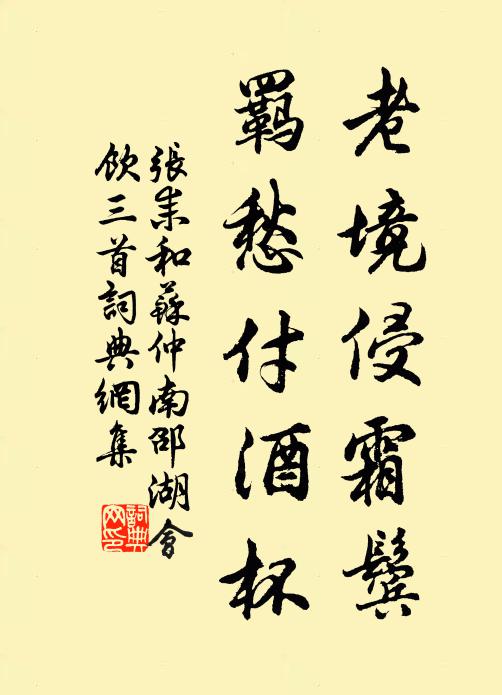 老境侵霜鬓
羈愁付酒杯
張耒和蘇仲南邵湖會
飲三首詞典網集
詞典
网印